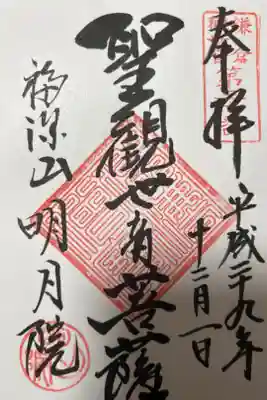 奉拝
平成二十九年
十二月一日
聖観世音菩薩
福源山明月院